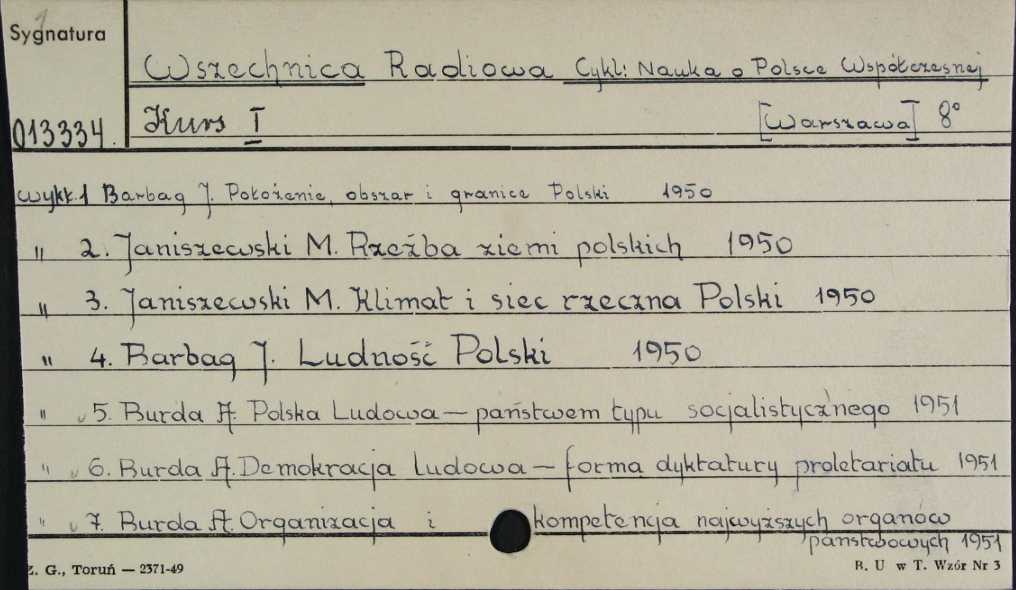 Sygnatura
Wszechnica Radiowa Cykl: Nauka o Polsce Współczesnej
013334. Kurs I [Warszawa] 8°
wykł.1 Barbag J. Położenie, obszar i granice Polski 1950
" 2. Janiszewski M. Rzeźba ziemi polskich 1950
" 3. Janiszewski M. Klimat i siec rzeczna Polski 1950
" 4. Barbag J. Ludność Polski 1950
" 5. Burda A. Polska Ludowa — państwem typu socjalistycznego 1951
" 6. Burda A. Demokracja Ludowa — forma dyktatury proletariatu 1951
" 7. Burda A. Organizacja i kompetencja najwyższych organów
państwowych 1951
Z. G., Toruń — 2371-49 B. U w T. Wzór Nr 3